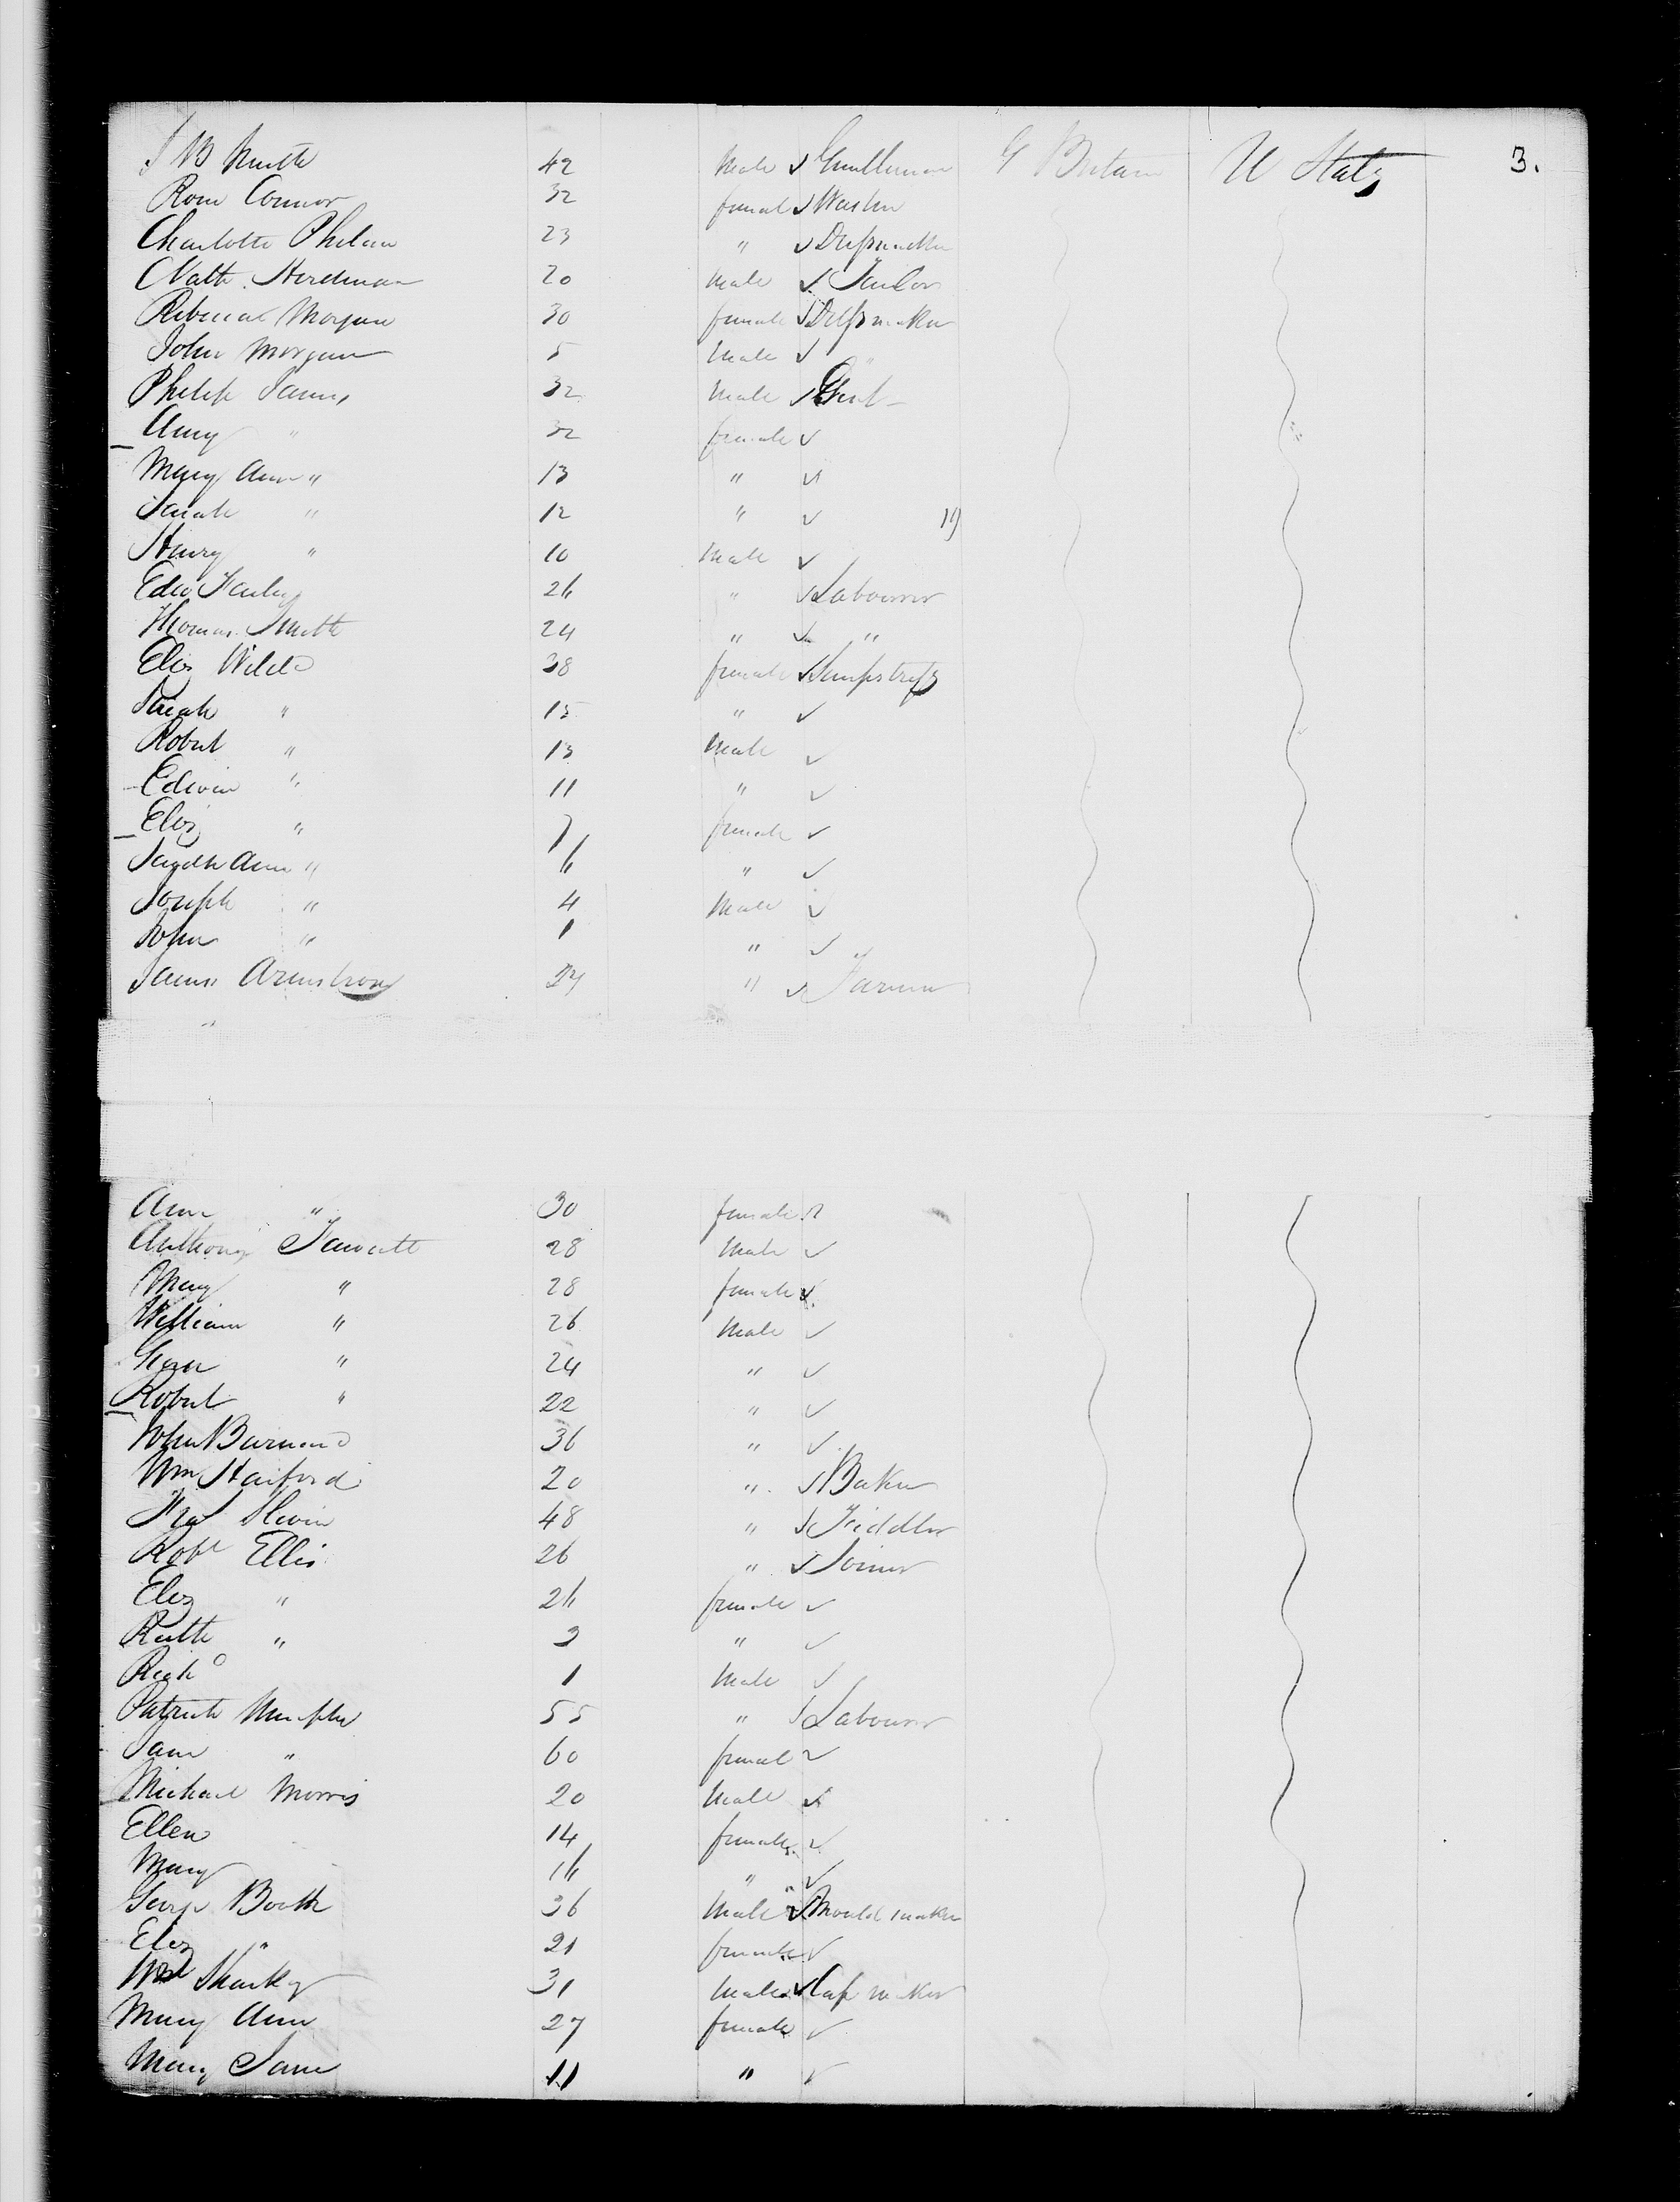 J B Smith 42 Male ✓ Gentleman G Britain U States 3.
Rose Connor 32 female ✓
Charlotte Phelan 23 " ✓ Dressmaker
Nath. Herdman 20 male ✓ Tailor
Rebecca Morgan 30 female ✓ Dressmaker
John Morgan 5 Male ✓
Philip James 32 Male ✓
Amy " 32 female ✓
Mary Ann " 13 " ✓
Sarah " 12 " ✓
Henry " 10 Male ✓
Edw 26 " ✓ Labourer
Thomas Smith 24 " ✓ "
Eliz Wild 38 female ✓ Sempstress
Sarah " 15 " ✓
Robert " 13 Male ✓
Edwin " 11 " ✓
Eliz " 7 female ✓
Ann " 6 " ✓
Joseph " 4 Male ✓
John " 1 " ✓
James Armstrong 24 " ✓ Farmer
Ann " 30 female ✓
Anthony Fawcett 28 Male ✓
Mary " 28 female ✓
William " 26 Male ✓
George " 24 " ✓
Robert " 22 " ✓
John 36 " ✓
Wm Harford 20 " ✓ Baker
48 " ✓ Fiddler
Robt Ellis 26 " ✓ Joiner
Eliz " 26 female ✓
Ruth " 3 " ✓
Richd 1 Male ✓
Patrick Murphy 55 " ✓ Labourer
Jane " 60 female ✓
Michael Morris 20 Male ✓
Ellen 14 female ✓
Mary 16 " ✓
George Booth 36 Male ✓ Mould maker
Eliz " 21 female ✓
Wm Sharkey 31 Male ✓ Cap maker
Mary Ann 27 female ✓
Mary Jane 11 " ✓